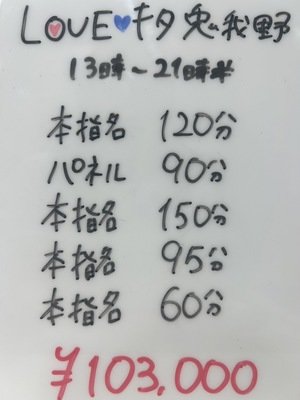 LOVE♥キタ兎我野
13時～21時半
本指名 120分
パネル 90分
本指名 150分
本指名 95分
本指名 60分
¥103,000